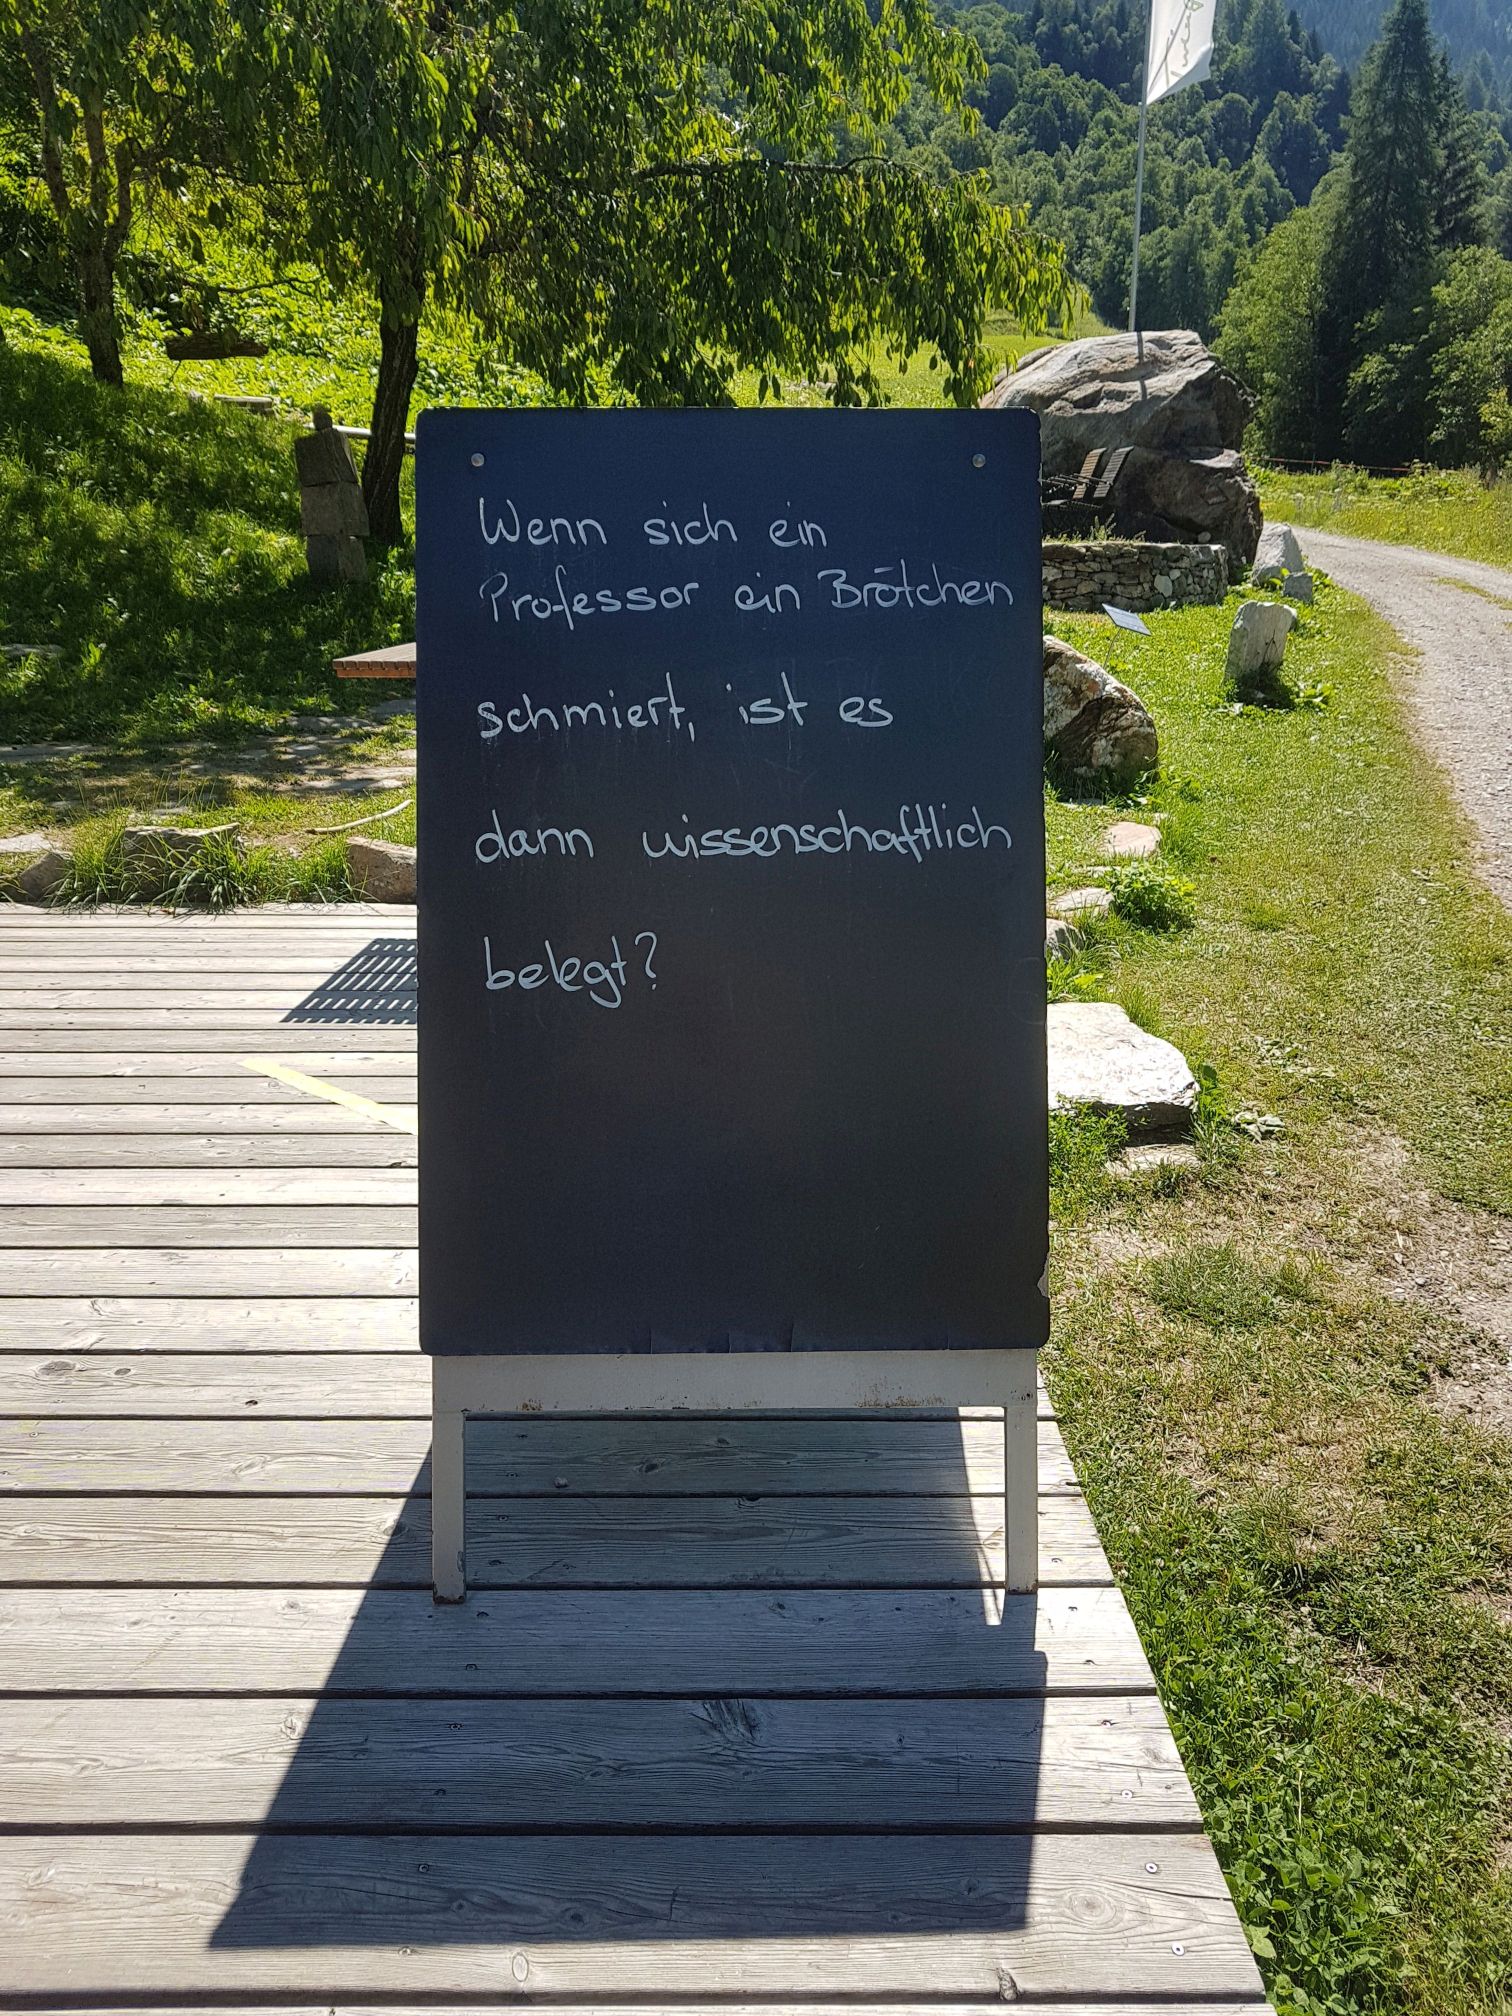 Wenn sich ein
Professor ein Brötchen
schmiert, ist es
dann wissenschaftlich
belegt?